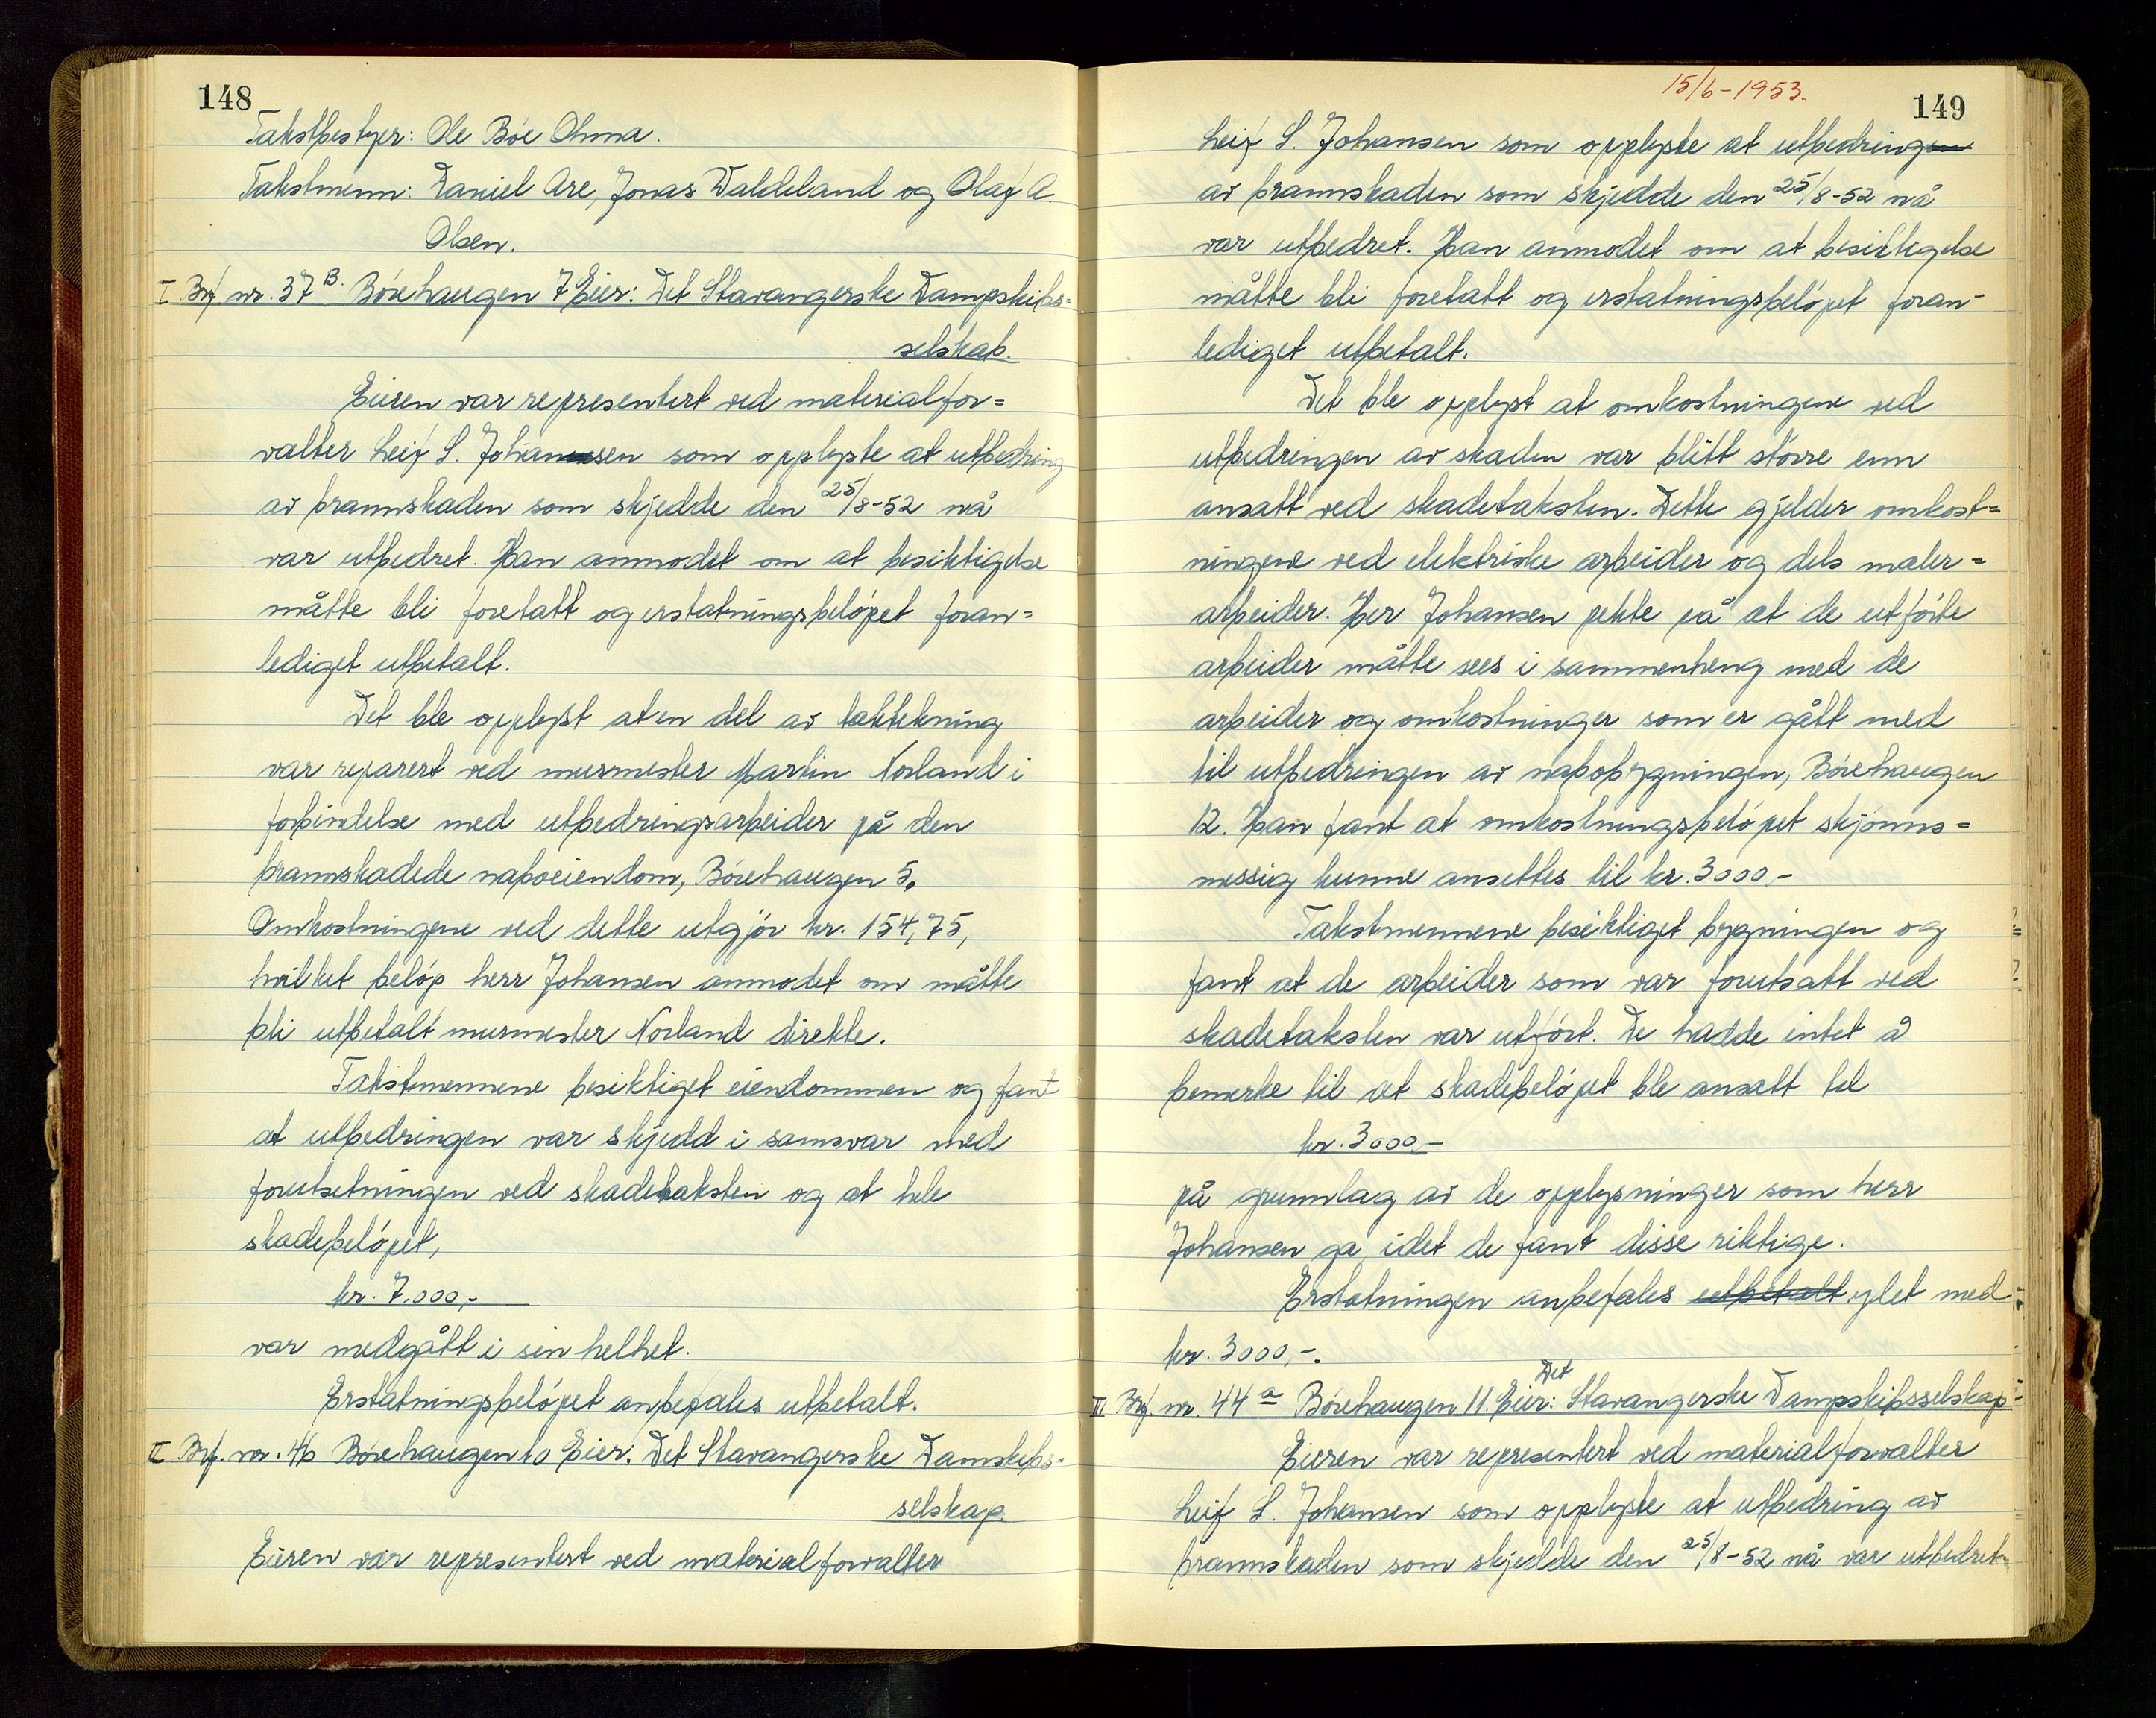 148
Takstbestyer: Ole Bóe Ohma.
Takstmenn: Daniel Are, Jonas Waldeland og Olaf A.
Olsen.
I Brf nr. 37B. Bórehaugen 7 Eier: Det Stavangerske Dampskibs=
selskab.
Eieren var representert ved materialfor=
valter Leif S. Johansen som opplyste at utbedring
av brannskaden som skjedde den 25/8-52 nå
var utbedret. Han anmodet om at besiktigelse
måtte bli foretatt og erstatningsbelópet foran=
lediget utbetalt.
Det ble opplyst at en del av taktekning
var reparert ved murmester Martin Norland i
forbindelse med utbedringsarbeider på den
brannskadede naboeiendom, Bórehaugen 5.
Omkostningene ved dette utgjór kr. 154,75,
hvilket belóp herr Johansen anmodet om måtte
bli utbetalt murmester Norland direkte.
Takstmennene besiktiget eiendommen og fant
at utbedringen var skjedd i samsvar med
forutsetningen ved skadetaksten og at hele
skadebelópet,
kr. 7.000,-
var medgått i sin helhet.
Erstatningsbelópet anbefales utbetalt.
II Brf. nr. 46 Bórehaugen 10 Eier: Det Stavangerske Damskibs-
selskap.
Eieren var representert ved materialforvalter
15/6-1953.
149
Leif S. Johansen som opplyste at utbedringen
av brannskaden som skjedde den 25/8-52 nå
var utbedret. Han anmodet om at besiktigelse
måtte bli foretatt og erstatningsbelópet foran-
lediget utbetalt.
Det ble opplyst at omkostningene ved
utbedringen av skaden var blitt stórre enn
ansatt ved skadetaksten. Dette gjelder omkost=
ningene ved elektriske arbeider og dels maler=
arbeider. Her Johansen pekte på at de utfórte
arbeider måtte sees i sammenheng med de
arbeider og omkostninger som er gått med
til utbedringen av nabobygningen, Bórehaugen
12. Han fant at omkostningsbelópet skjónns=
messig kunne ansettes til kr. 3000,-
Takstmennene besiktiget bygningen og
fant at de arbeider som var forutsatt ved
skadetaksten var utfórt. De hadde intet å
bemerke til at skadebelópet ble ansatt til
kr. 3000,-
på grunnlag av de opplysninger som herr
Johansen ga, idet de fant disse riktige.
Erstatningen anbefales utbetalt ydet med
kr. 3000,-.
III Brf. nr. 44 a Bórehaugen 11. Eier: Det Stavangerske Dampskibsselskap.
Eieren var representert ved materialforvalter
Leif S. Johansen som opplyste at utbedring av
brannskaden som skjedde den 25/8-52 nå var utbedret.